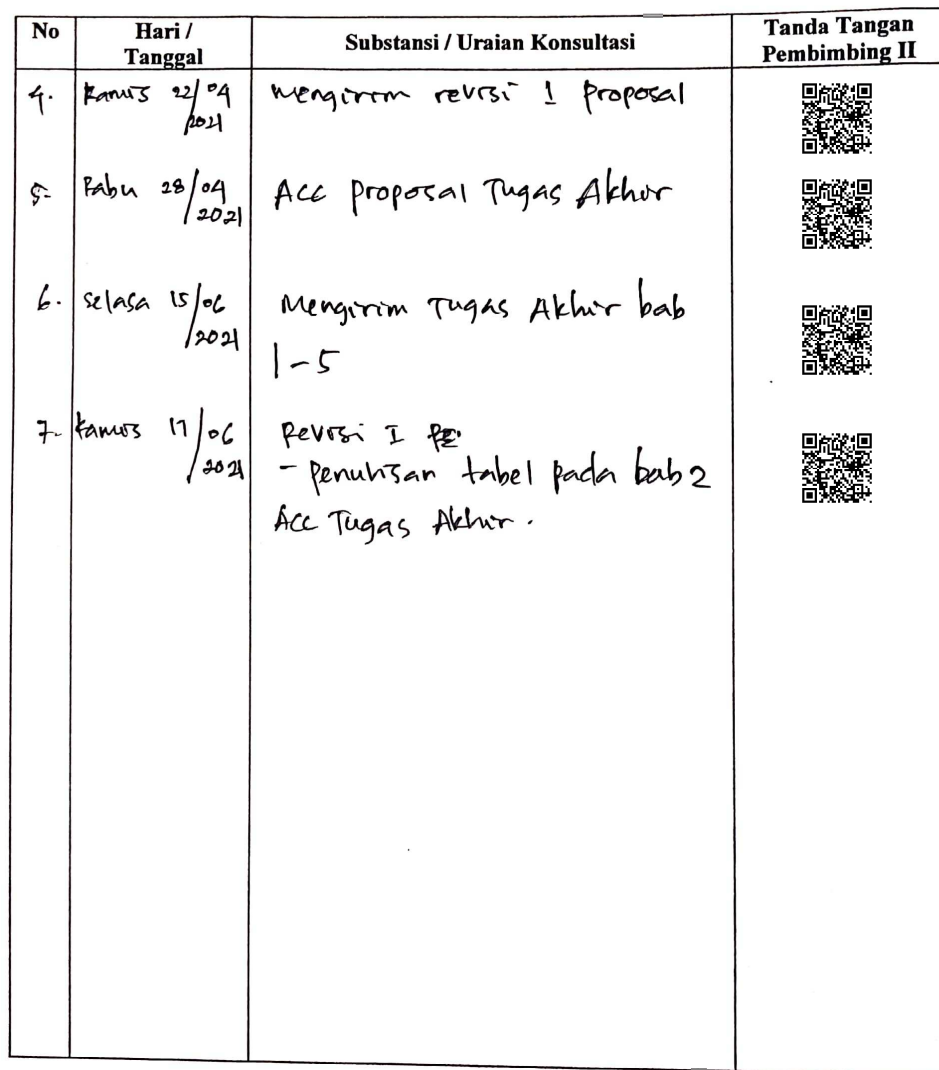 No Hari / Tanggal Substansi / Uraian Konsultasi Tanda Tangan Pembimbing II
4. Kamis 22/04/2021 Mengirim revisi 1 proposal
5. Rabu 28/04/2021 Acc proposal Tugas Akhir
6. Selasa 15/06/2021 Mengirim Tugas Akhir bab
1-5
7. Kamis 17/06/2021 Revisi I
- Penulisan tabel pada bab 2
Acc Tugas Akhir.